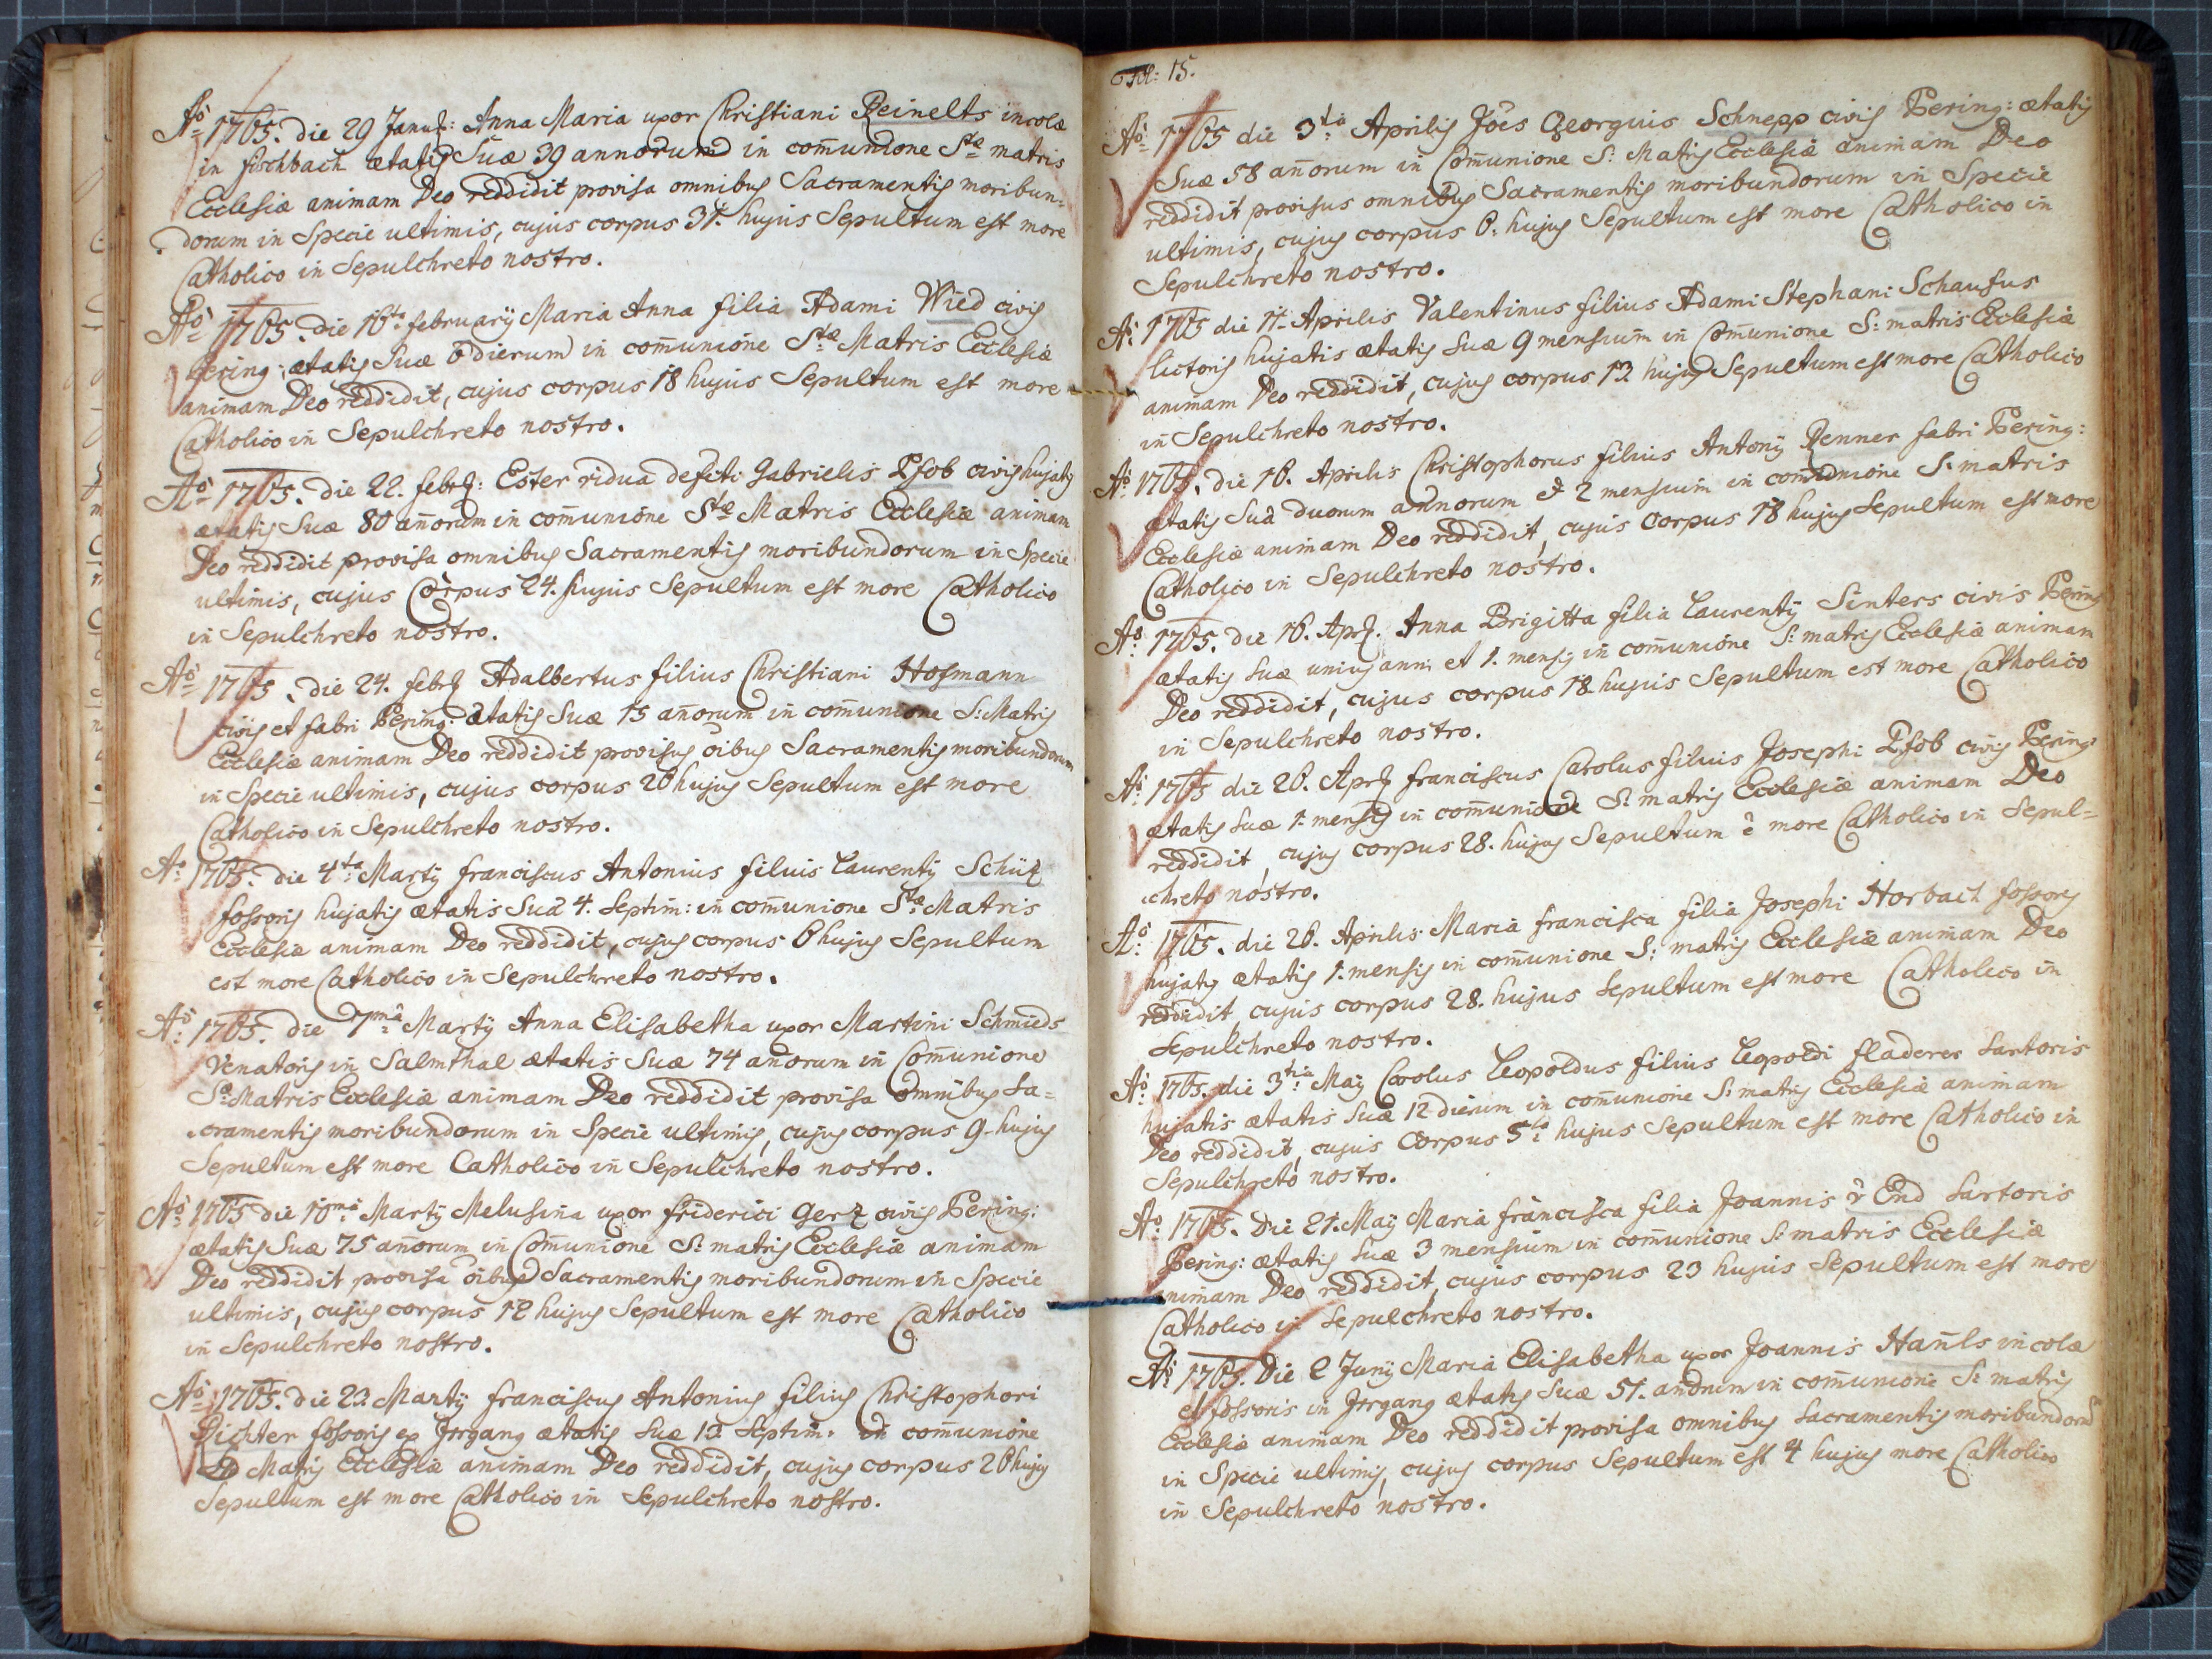 Aõ 1765. die 29 Januɐ̃: Anna Maria uxor Christiani Reinelts incolæ
in fischbach ætatis Suæ 39 annorum in com̄unione Stæ matris
Ecclesiæ animam Deo reddidit provisa omnibus Sacramentis moribun=
dorum in Specie ultimis, cujus corpus 31. hujus Sepultum est more
Catholico in Sepulchreto nostro.
Aõ 1765. die 16ta februarij Maria Anna filia Adami Wied civis
Bering: ætatis Suæ 6 dierum in com̄unione Stæ Matris Ecclesiæ
animam Deo reddidit, cujus corpus 18 hujus Sepultum est more
Catholico in Sepulchreto nostro.
Aõ 1765. die 22. febr: Ester vidua defcti Gabrielis Pfob civis hujatis
ætatis Suæ 80 añorum in com̄unione Stæ Matris Ecclesiæ animam
Deo reddidit provisa omnibus Sacramentis moribundorum in Specie
ultimis, cujus Corpus 24. hujus Sepultum est more Catholico
in Sepulchreto nostro.
Aõ 1765. die 24. febr Adalbertus filius Christiani Hofmann
civis et fabri Bering: ætatis Suæ 15 añorum in com̄unione S: Matris
Ecclesiæ animam Deo reddidit provisus õibus Sacramentis moribundorum
in Specie ultimis, cujus corpus 26 hujus Sepultum est more
Catholico in Sepulchreto nostro.
Aõ 1765. die 4ta Martij franciscus Antonius filius Laurentij Schüz
fossoris hujatis ætatis Suæ 4. Septim: in com̄unione Stæ Matris
Ecclesiæ animam Deo reddidit, cujus corpus 6 hujus Sepultum
est more Catholico in Sepulchreto nostro.
Aõ: 1765. die 7ma Martij Anna Elisabetha uxor Martini Schmieds
Venatoris in Salmthal ætatis Suæ 74 añorum in Com̄unione
Sæ Matris Ecclesiæ animam Deo reddidit provisa omnibus Sa=
cramentis moribundorum in Specie ultimis, cujus corpus 9 hujus
Sepultum est more Catholico in Sepulchreto nostro.
Aõ: 1765 die 10ma Martij Melusina uxor friderici Gerz civis Bering:
ætatis Suæ 75 añorum in Com̄unione S: matris Ecclesiæ animam
Deo reddidit provisa õibus Sacramentis moribundorum in Specie
ultimis, cujus corpus 12 hujus Sepultum est more Catholico
in Sepulchreto nostro.
Aõ 1765. die 23. Martij franciscus Antonius filius Christophori
Dichter fossoris ex Irrgang ætatis Suæ 13 Septim: in com̄unione
Matris Ecclesiæ animam Deo reddidit, cujus corpus 26 hujus
Sepultum est more Catholico in Sepulchreto nostro.
Fol: 15.
Aõ 1765 die 3tia Aprilis Jões Georgius Schnepp civis Bering: ætatis
Suæ 58 añorum in Com̄unione S: Matris Ecclesiæ animam Deo
reddidit provisus omnibus Sacramentis moribundorum in Specie
ultimis, cujus corpus 6. hujus Sepultum est more Catholico in
Sepulchreto nostro.
Aõ: 1765 die 11. Aprilis Valentinus filius Adami Stephani Schaufus
lictoris hujatis ætatis Suæ 9 mensium in Com̄unione S: matris Ecclesiæ
animam Deo reddidit, cujus corpus 13 hujus Sepultum est more Catholico
in Sepulchreto nostro.
Aõ 1765. die 16. Aprilis Christophorus filius Antonij Renner fabri Bering:
ætatis Suæ duorum annorum et 2 mensium in com̄unione S: matris
Ecclesiæ animam Deo reddidit, cujus Corpus 18 hujus Sepultum est more
Catholico in Sepulchreto nostro.
Aõ: 1765. die 16. Apr. Anna Brigitta filia Laurentij Sinters civis Bering:
ætatis Suæ unius anni et 1. mensis in com̄unione S: matris Ecclesiæ animam
Deo reddidit, cujus corpus 18 hujus Sepultum est more Catholico
in Sepulchreto nostro.
Aõ: 1765 die 26. Apr franciscus Carolus filius Josephi Pfob civis Bering:
ætatis Suæ 1. mensis in com̄unione S: matris Ecclesiæ animam Deo
reddidit, cujus corpus 28. hujus Sepultum ẽ more Catholico in Sepul=
chreto nostro.
Aõ: 1765. die 26. Aprilis Maria francisca filia Josephi Horbach fossoris
hujatis ætatis 1. mensis in com̄unione S: matris Ecclesiæ animam Deo
reddidit cujus corpus 28. hujus Sepultum est more Catholico in
Sepulchreto nostro.
Aõ: 1765. die 3tia Maij Carolus Leopoldus filius Leopoldi fladerer Sartoris
hujatis ætatis Suæ 12 dierum in com̄unione S: matris Ecclesiæ animam
Deo reddidit, cujus Corpus 5ta hujus Sepultum est more Catholico in
Sepulchreto nostro.
Aõ: 1765. Die 21. Maij Maria francisca filia Joannis v̂ End Sartoris
Bering: ætatis Suæ 3 mensium in com̄unione S: matris Ecclesiæ
animam Deo reddidit, cujus corpus 23 hujus Sepultum est more
Catholico in Sepulchreto nostro.
Aõ: 1765. Die 2 Junij Maria Elisabetha uxor Joannis Ham̄ls incolæ
et fossoris in Irrgang ætatis Suæ 51. añorum in com̄unione S: matris
Ecclesiæ animam Deo reddidit provisa omnibus Sacramentis moribundorū
in Specie ultimis, cujus corpus Sepultum est 4 hujus more Catholico
in Sepulchreto nostro.